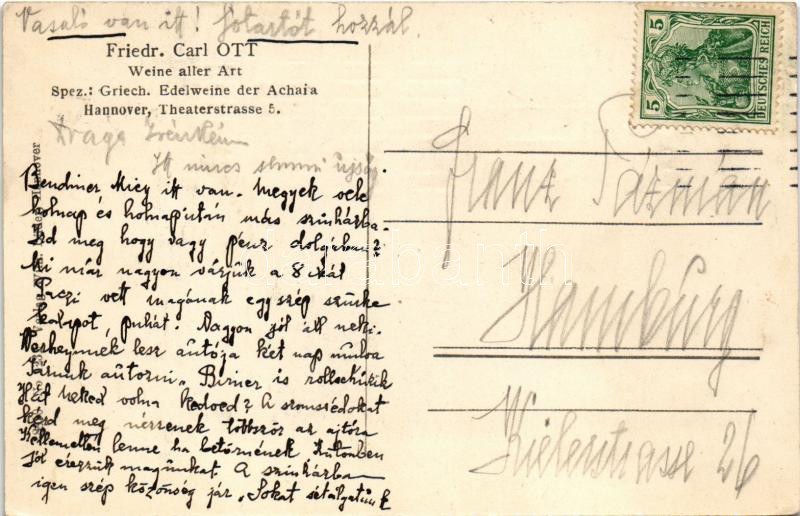 Vasaló van itt! Sótartót hozzál.
Friedr. Carl OTT
Weine aller Art
Spez.: Griech. Edelweine der Achaia
Hannover, Theaterstrasse 5.
Drága
Itt nincs semmi újság
Bendiner Micy itt van. Megyek vele
holnap és holnapután más színházba.
Írd meg hogy vagy pénz dolgában?
Mi már nagyon várjuk a 8 ikát
Paczi vett magának egy szép szürke
kalapot, puhát. Nagyon jól áll neki.
lesz autója két nap mulva
Járunk autozni. Birner is
Hát neked volna kedved? A szomszédokat
kérd meg nézzenek többször az ajtóra
Kellemetlen lenne ha betörnének Különben
jól érezzük magunkat. A színházba
igen szép közönség jár. Sokat sétálgatunk
Hannover
5
5
DEUTSCHES REICH
Franz Pázmán
Hamburg
Kielerstrasse 26